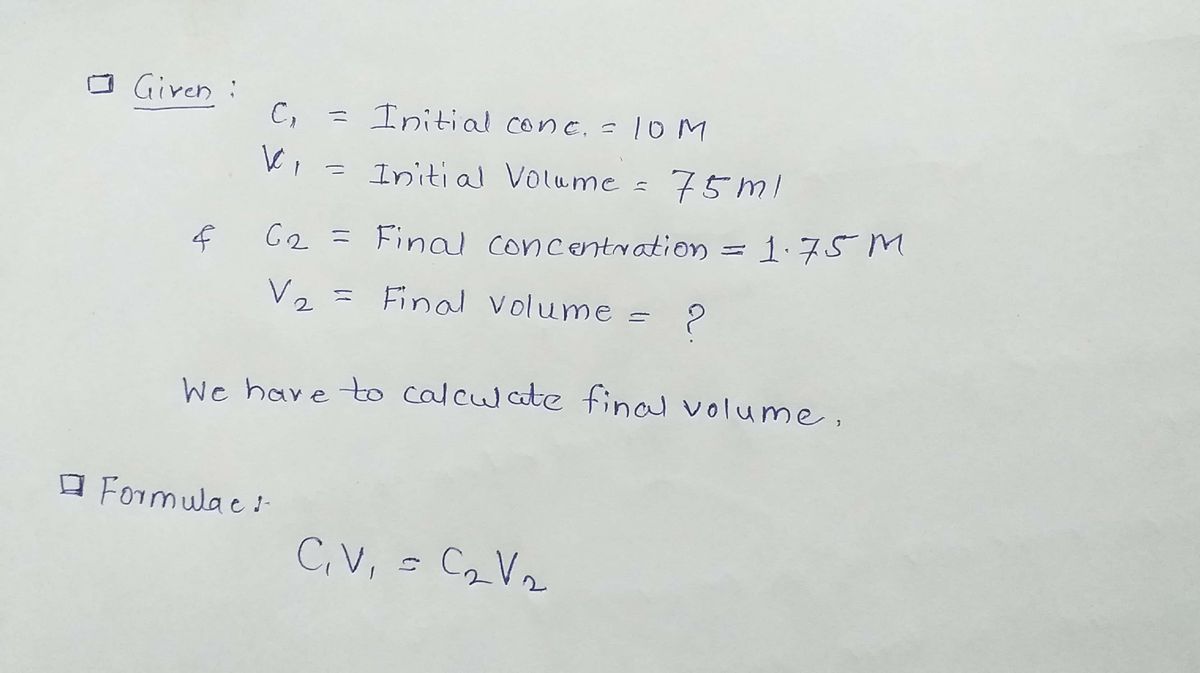 Given :
C₁ = Initial conc. = 10 M
V₁ = Initial Volume = 75 ml
& C₂ = Final concentration = 1.75 M
V₂ = Final volume = ?
We have to calculate final volume.
Formulae :-
C₁V₁ = C₂V₂